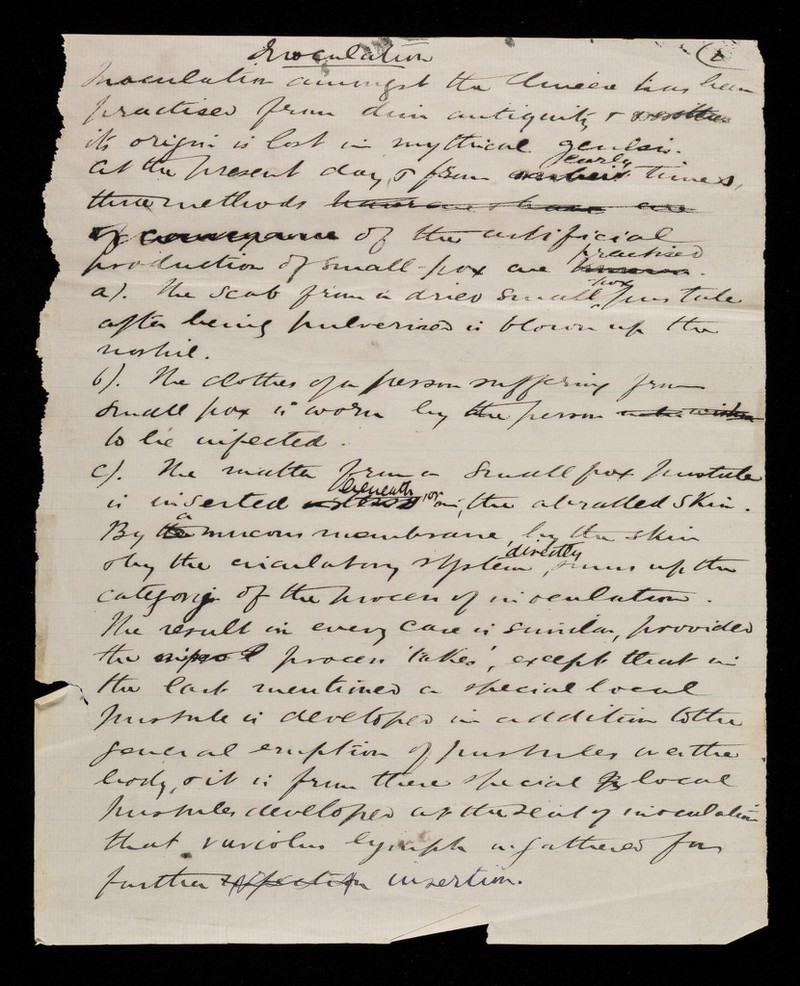 Inoculation
Inoculation amongst the Chinese has been
practised from dim antiquity &
its origin is lost in mythical genesis.
At the present day, & from early times,
three methods
of the artificial
production of small-pox are practised.
a). The scab from a dried small pox pustule
after being pulverised is blown up the
nostril.
b). The clothes of a person suffering from
small pox is worn by the person
to be infected.
c). The matter from a small pox pustule
is inserted beneath, or on, the abradled skin.
By a mucous membrane, by the skin
& by the circulatory system directly, sums up the
category of the process of inoculation.
The result in every case is similar, provided
the process 'takes', except that in
the last mentioned a special local
pustule is developed in addition to the
general eruption of pustules over the
body, & it is from these special local
pustules developed at the seat of inoculation
that variolus lymph is gathered for
further insertion.